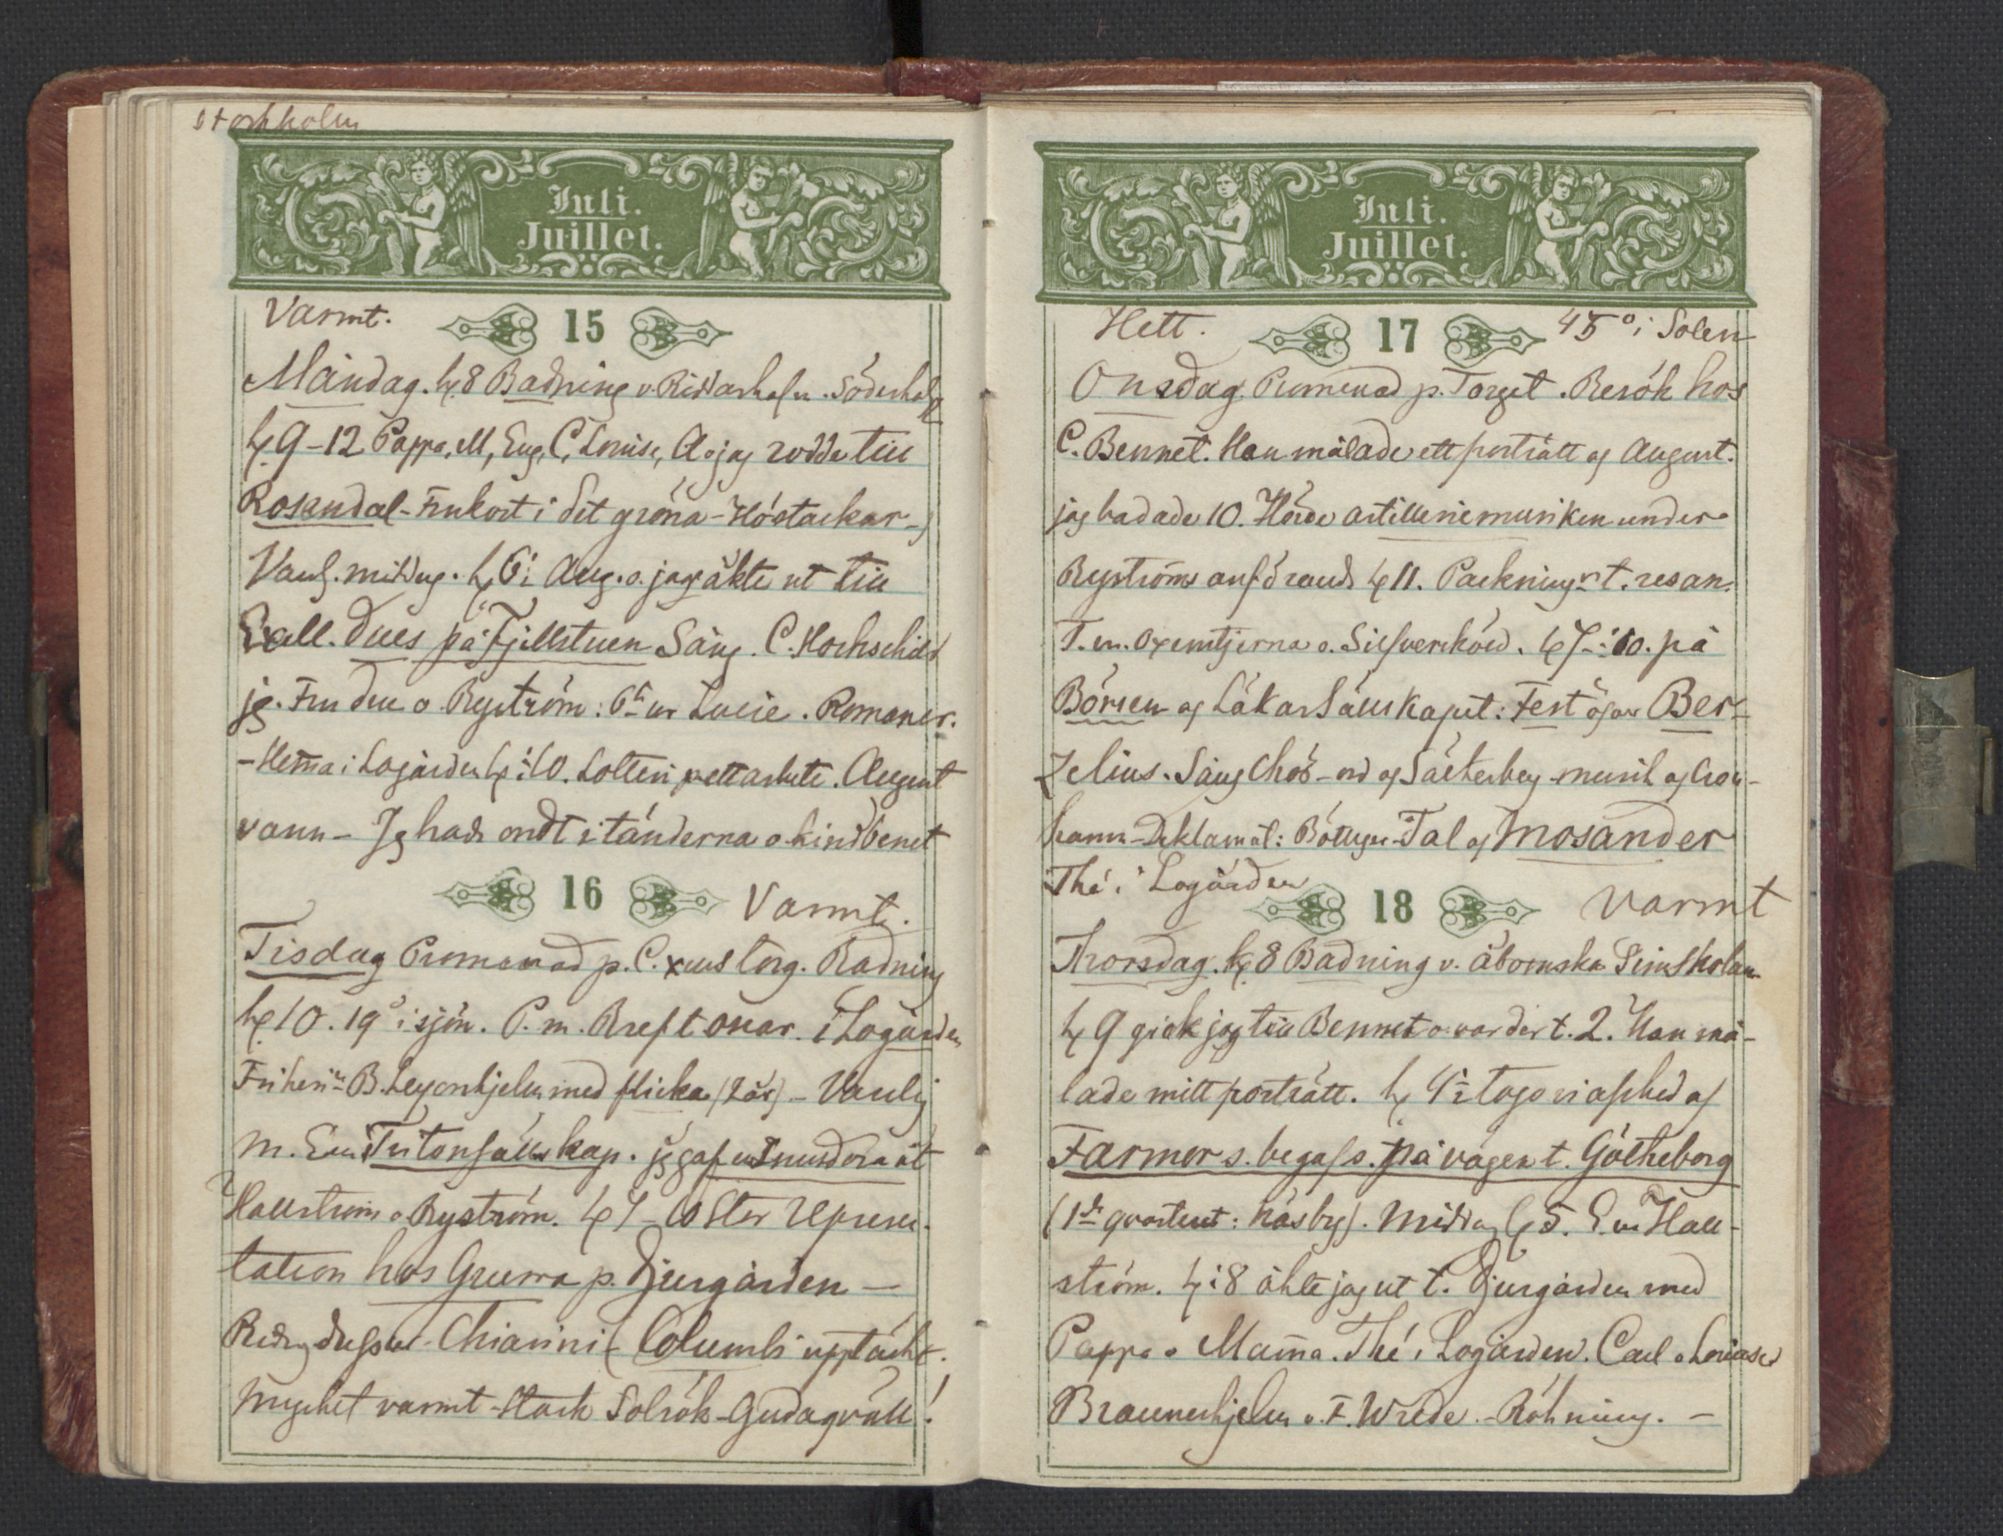 Stockholm
Juli.
Juillet.
Varmt. 15
Måndag. kl. 8 Badning v. Riddarhafn. Söderhalf
kl. 9-12 Pappa, M, Eug, C, Louise, A o jag rodde till
Rosendal - Frukost i det gröna - Höstackar -
Vanl. middag. kl. 6 Aug. o. jag åkte ut till
Exell. Dues på Fjellstuen Sång. C. Hochschild
jg. Fru Due o Byström: ur Lucie. Romancer.
- Hema i Logården kl 10. Lotteri . August
vann - Jg hade ondt i tänderna o kindbenet
16 Varmt.
Tisdag Promenad p. C. torg. Badning
kl. 10. 19° i sjön. P. m. Bref t Oscar. i Logården
Friherin B. Leyonhjelm med flicka - Vanlig
M. Em Tritonsällskap. jg gaf
Hallström o Byström. kl 7-10 Stor Represen-
tation hos Guerra p. Djurgården -
Chiarini (Columbi uppfäckt.
Mycket varmt - Stark Solrök - Gudagväll!
Juli.
Juillet.
Hett. 17 45° i Solen
Onsdag. Promenad p. Torget. Besök hos
C. Bennet. Han målade ett porträtt af August.
jag badade 10. Hörde artillerimusiken under
Byströms anförande kl 11. Packning t. resan.
T. m. Oxenstjerna o. Silfversköld. kl 7-10. på
Börsen af Läkar Sällskapet: Fest öfver Ber-
zelius. Sång Chör - ord af Säterberg - musik af Cron-
hamn - Deklamat: Böttiger - Tal af Mosander
Thé i Logården
18 Varmt
Thorsdag. kl. 8 Badning v. åbomska Simskolan
kl 9 gick jag till Bennet o var der t. 2. Han må-
lade mitt porträtt. kl 4 togo vi afsked af
Farmor s. begaf s. på vägen t. Götheborg
(1sta qvarteret: Näsby). Middag kl 5. Em Hall-
ström. kl 8 åkte jag ut t. Djurgården med
Pappa o Mama. Thé i Logården. Carl o Louise
Braunerhjelm o. F. Wrede. - Rökning. -